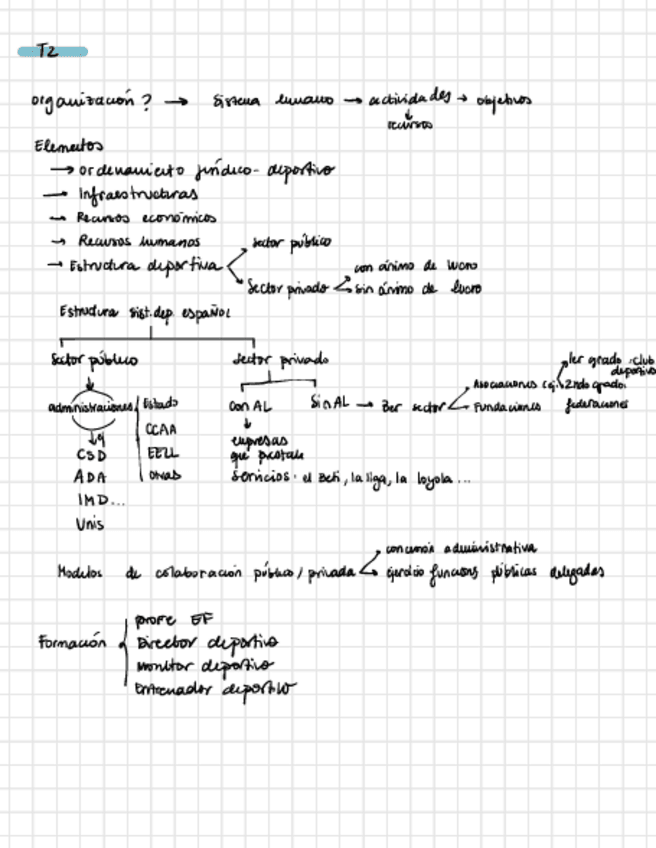 T2
Organización? → Sistema humano → actividades → objetivos
recursos
Elementos
→ Ordenamiento jurídico-deportivo
→ Infraestructuras
→ Recursos económicos
→ Recursos humanos
sector público
→ Estructura deportiva
con ánimo de lucro
Sector privado
sin ánimo de lucro
Estructura sist. dep. español
Sector público
Sector privado
administraciones
Estado
CCAA
EELL
Otras
ej
CSD
ADA
IMD...
Unis
Con AL
empresas
que prestan
servicios: el Beti, la liga, la loyola...
Sin AL → 3er sector
Asociaciones
1er grado: club
deportivo
2ndo grado:
federaciones
Fundaciones
Modelos de colaboración público/privada
administrativa
ejercicio funciones públicas delegadas
Formación
profe EF
Director deportivo
Monitor deportivo
Entrenador deportivo